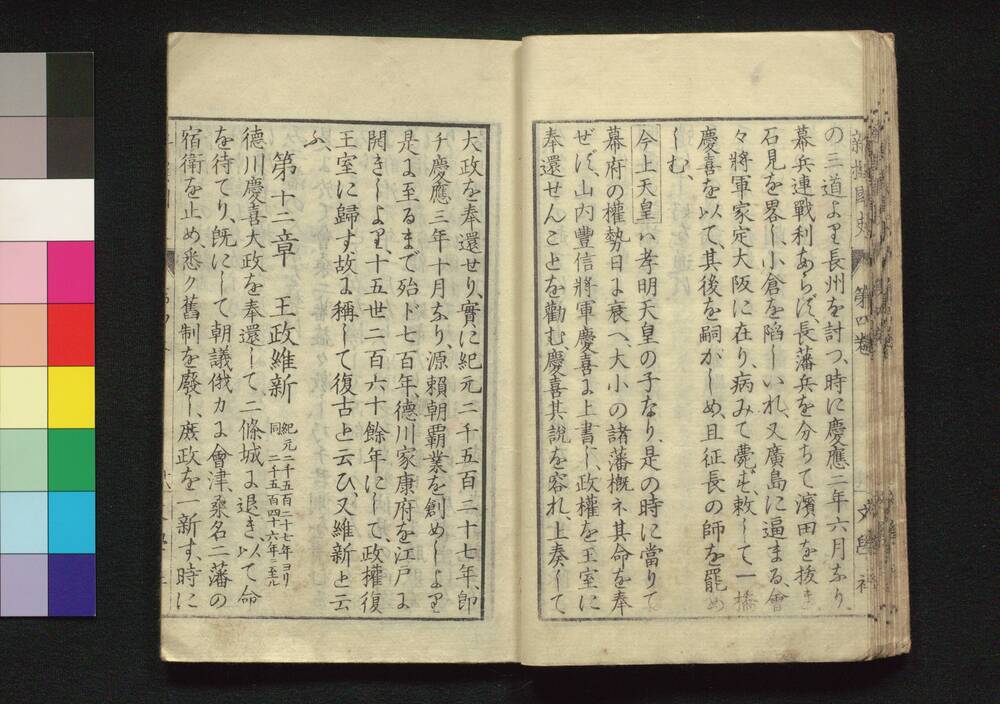 新撰國史 第四卷 文學社
の三道より長州を討つ、時に慶應二年六月なり、
幕兵連戰利あらず、長藩兵を分ちて濱田を拔き
石見を畧し、小倉を陷しいれ、又廣島に逼まる、會
々將軍家定大阪に在り、病みて薨ず、敕して一橋
慶喜を以て、其後を嗣がしめ、且征長の師を罷め
しむ、
今上天皇ハ孝明天皇の子なり、是の時に當りて
幕府の權勢日に衰へ、大小の諸藩概ネ其命を奉
ぜず、山内豐信將軍慶喜に上書し、政權を王室に
奉還せんことを勸む、慶喜其說を容れ、上奏して
大政を奉還せり、實に紀元二千五百二十七年、卽
チ慶應三年十月なり、源賴朝覇業を創めしより
是に至るまで殆ド七百年、德川家康府を江戸に
開きしより、十五世二百六十餘年にして、政權復
王室に歸す、故に稱して復古と云ひ、又維新と云
ふ、
第十二章 王政維新 紀元二千五百二十七年ヨリ
同 二千五百四十六年ニ至ル
德川慶喜大政を奉還して、二條城に退き、以て命
を待てり、既にして朝議俄カに會津、桑名二藩の
宿衛を止め、悉ク舊制を廢し、庶政を一新す、時に